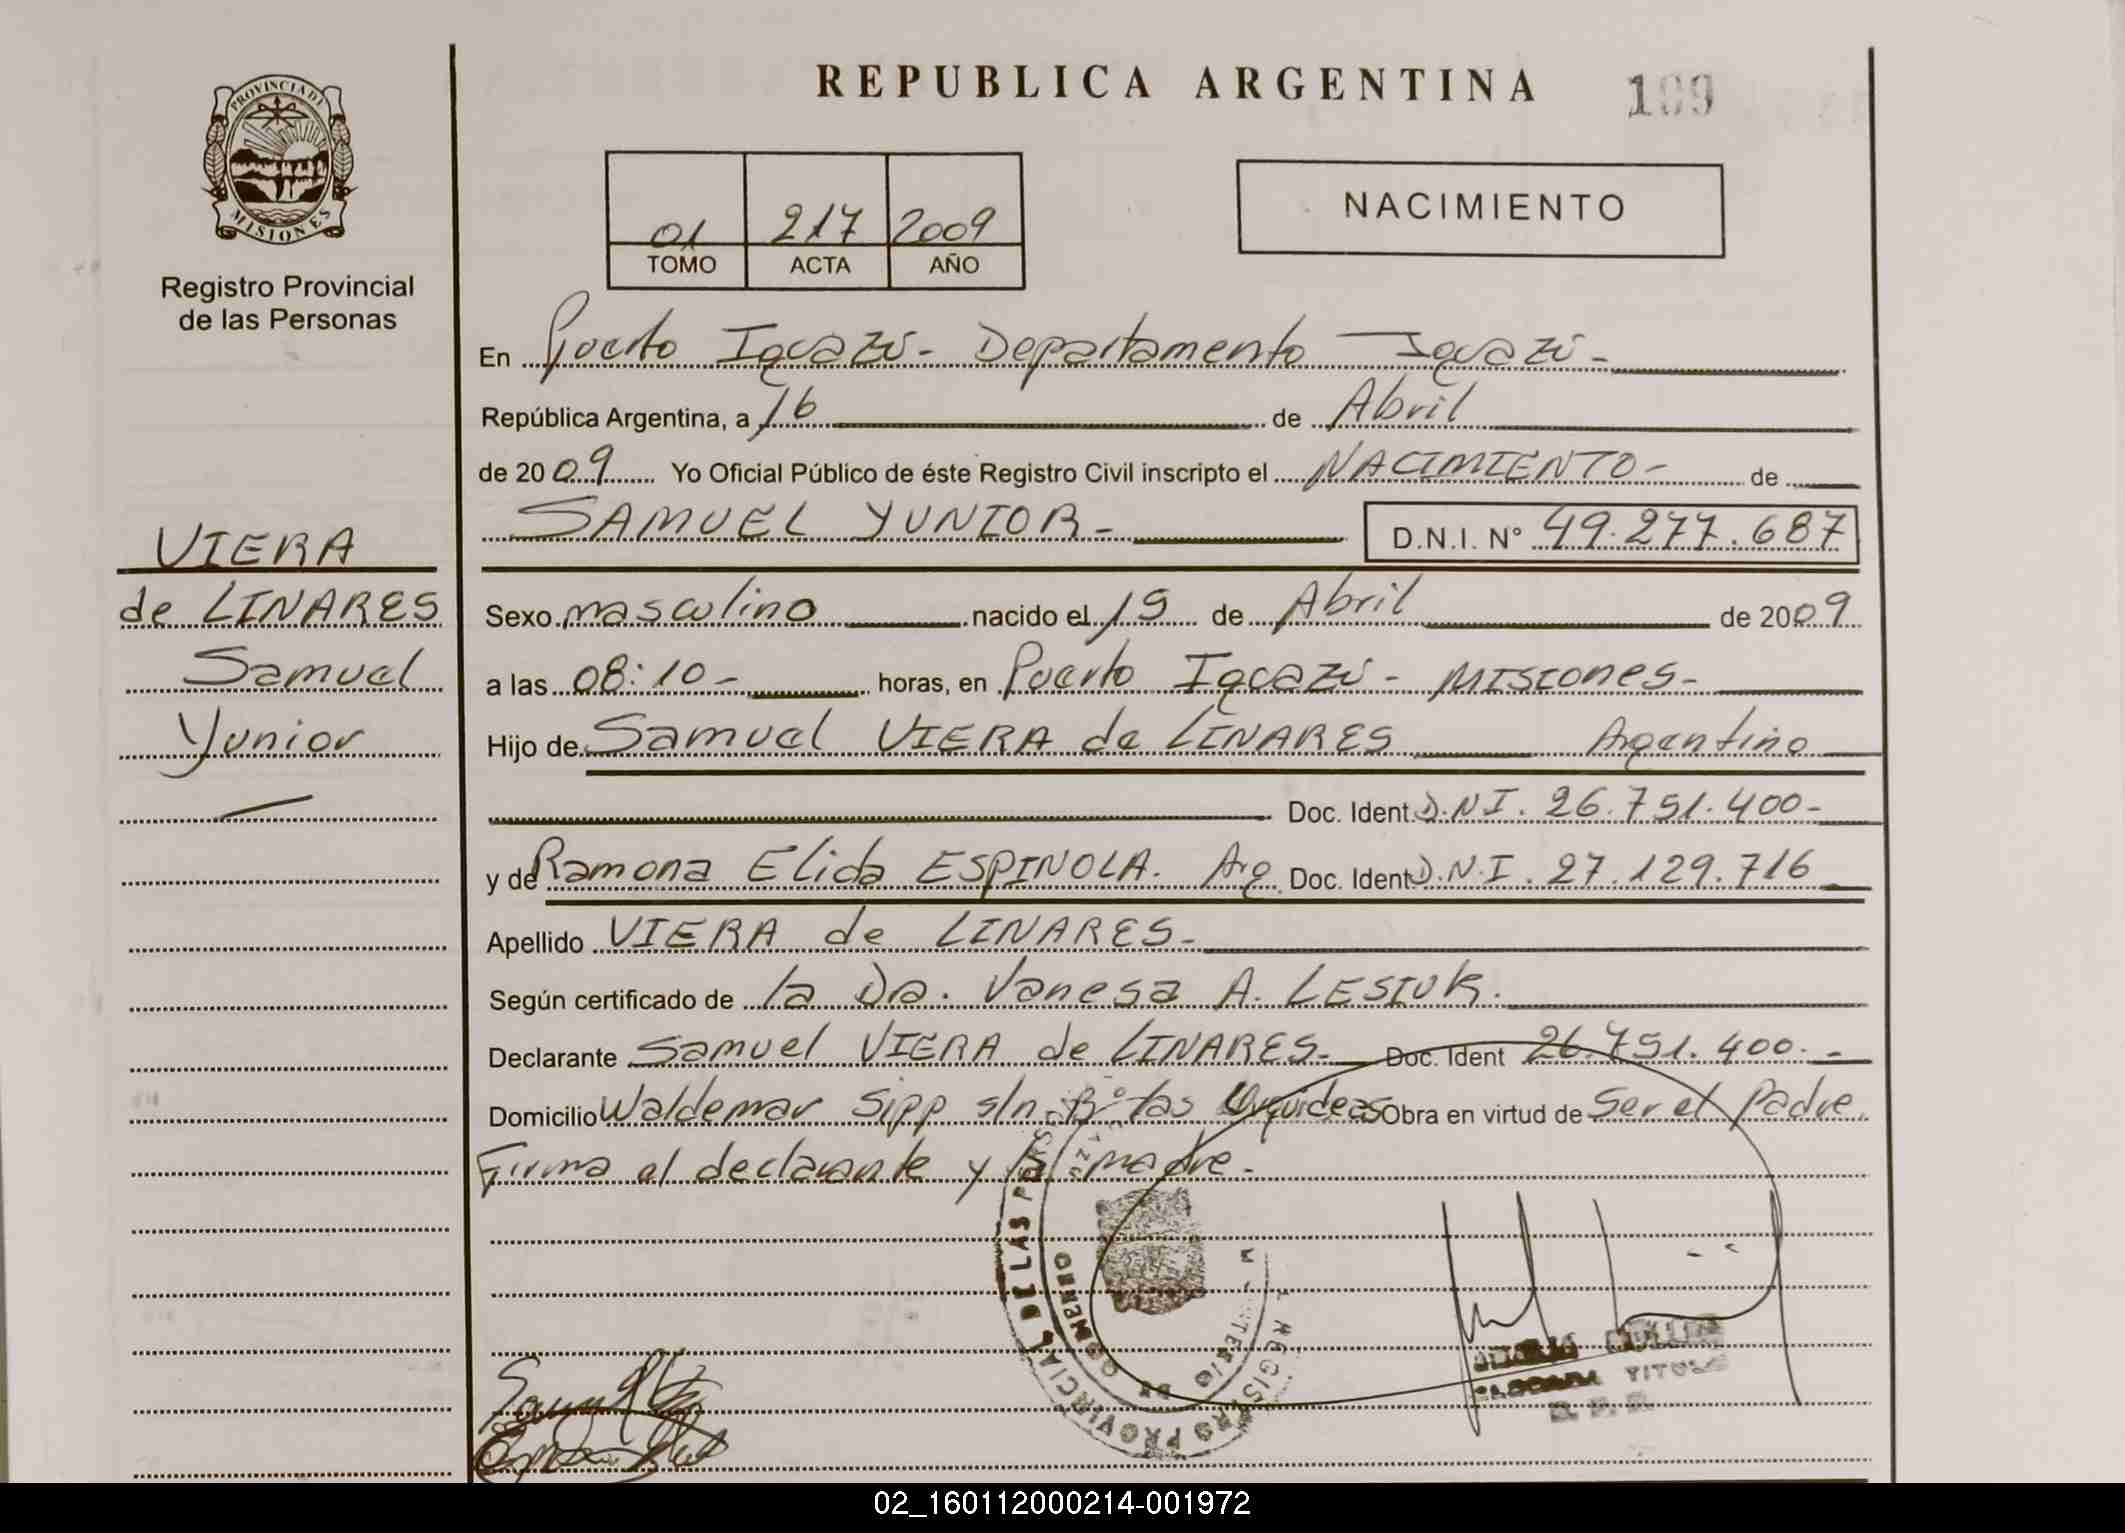 REPUBLICA ARGENTINA
199
PROVINCIA DE
MISIONES
Registro Provincial
de las Personas
01 217 2009
TOMO ACTA AÑO
NACIMIENTO
En Puerto Iguazú - Departamento Iguazú -
República Argentina, a 16 de Abril
de 2009 Yo Oficial Público de éste Registro Civil inscripto el NACIMIENTO - de
SAMUEL YUNIOR - D.N.I. Nº 49.277.687
VIERA
de LINARES
Samuel
Yunior
Sexo masculino nacido el 15 de Abril de 2009
a las 08:10 - horas, en Puerto Iguazú - MISIONES -
Hijo de Samuel VIERA de LINARES Argentino
Doc. Ident. D.N.I. 26.751.400 -
y de Ramona Elida ESPINOLA. Arg. Doc. Ident D.N.I. 27.129.716
Apellido VIERA de LINARES -
Según certificado de la Dra. Vanesa A. LESIUK.
Declarante Samuel VIERA de LINARES - Doc. Ident 26.751.400. -
Domicilio Waldemar Sipp s/n. Bº las Orquideas Obra en virtud de Ser el Padre
Firma el declarante y la madre -
REGISTRO PROVINCIAL DE LAS
MINISTERIO DE GOBIERNO
TITULAR
R. P. P.
02_160112000214-001972